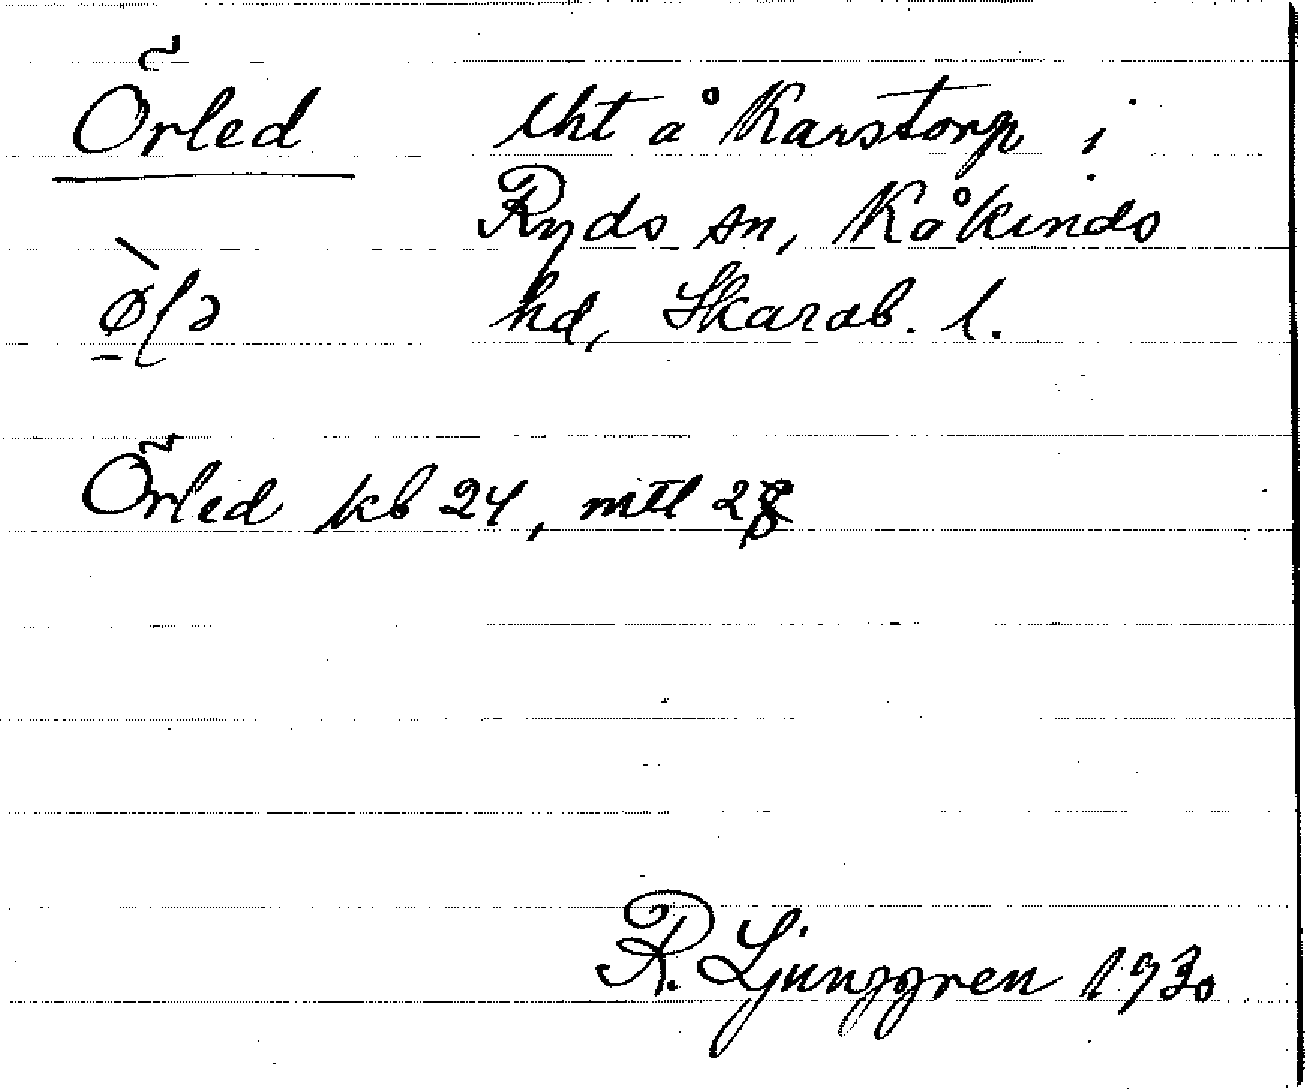 Örled lht å Karstorp i
Ryds sn, Kåkinds
hd, Skarab. l.
Örled kb 24, mtl 28
R. Ljunggren 1930